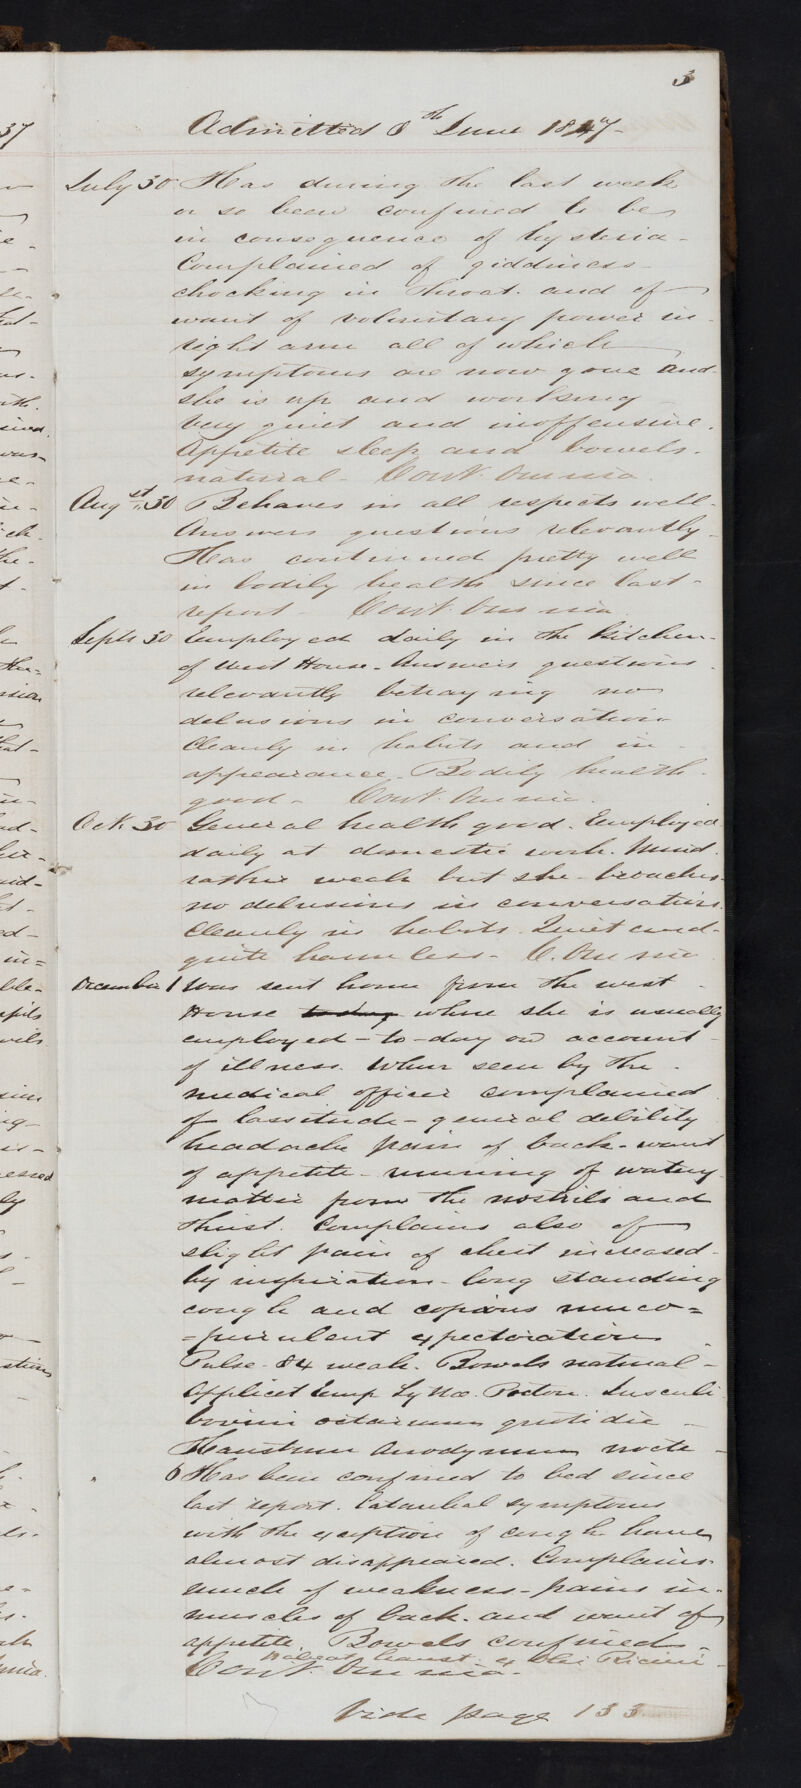 3
Admitted 8th June 1847-
July 30 Has during the last week
or so been confined to be
in consequence of hysteria -
Complained of giddiness
chocking in throat. and of
want of voluntary power in
right arm all of which
symptoms are now gone and
she is up and working
very quiet and inoffensive.
Appetite sleep and bowels.
natural - Cont. Omnia.
Augst " 30 Behaves in all respects well -
Answers questions relevantly -
Has continued pretty well
in bodily health since last -
report - Cont. Omnia
Septr 30 Employed daily in the kitchen -
of West House - Answers questions
relevantly betraying no
delusions in conversation
Cleanly in habits and in
appearance. Bodily health
good - Cont. Omnia.
Oct. 30 General health good. Employed
daily at domestic work. Mind.
rather weak but she broaches
no delusions in conversation.
Cleanly in habits. Quiet and -
quite harmless - C. Omnia
December 1 Was sent home from the west -
House to-day where she is usually
employed - to - day on account -
of illness. When seen by the
medical officer complained
of lassitude - general debility
headache pain of back - want
of appetite - running of watery
matter from the nostrils and
thirst. Complains also of
slight pain of chest increased -
by inspiration - long standing
cough and copious muco =
= purulent expectoration
Pulse - 84 weak. Bowels natural -
Applicet Emp Lyttae. Pectori. Jusculi
bovini octarium quotidie -
Haustrum Anodynum nocte -
" 6 Has been confined to bed since
last report. Catarrhal symptoms
with the exception of cough have
almost disappeared. Complains
much of weakness - pains in -
muscles of back - and want of
appetite. Bowels confined -
Habeat haust. ex Olei Ricini -
Cont. Omnia -
Vide page 133